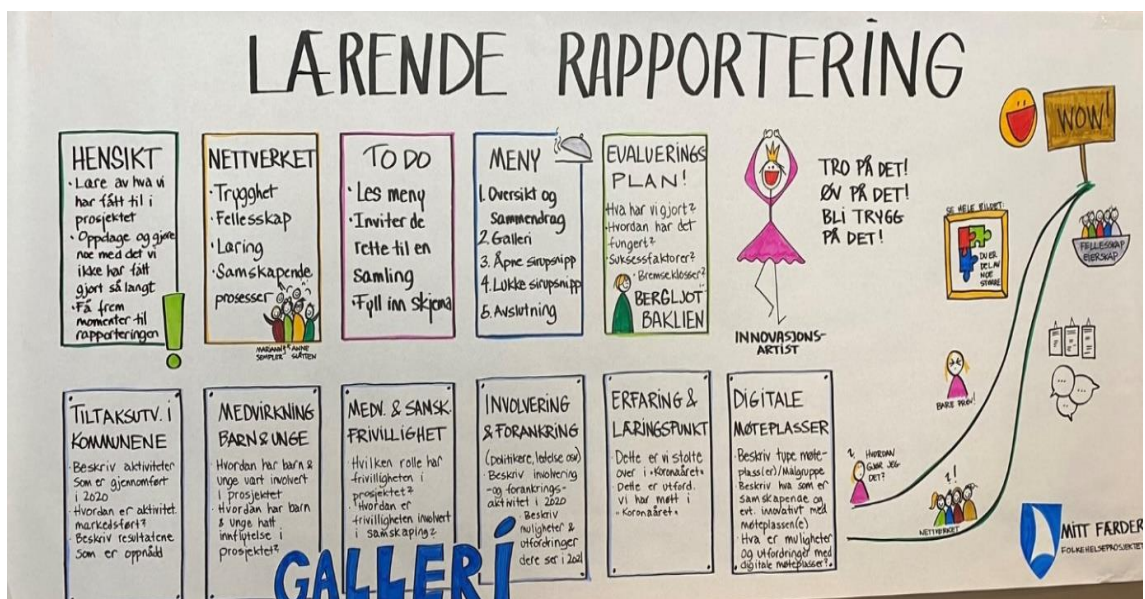 LÆRENDE RAPPORTERING
HENSIKT
• Lære av hva vi
har fått til i
prosjektet
• Oppdage og gjøre
noe med det vi
ikke har fått
gjort så langt
• Få frem
momenter til
rapporteringen
NETTVERKET
• Trygghet
• Fellesskap
• Læring
• Samskapende
prosesser
MARIANNE
SEMPLER
& ANNE
SLÅTTEN
TO DO
• Les meny
• Inviter de
rette til en
samling
• Fyll inn skjema
MENY
1. Oversikt og
Sammendrag
2. Galleri
3. Åpne sirupsnipp
4. Lukke sirupsnipp
5. Avslutning
EVALUERINGS
PLAN!
Hva har vi gjort?
• Hvordan har det
fungert?
• Suksessfaktorer?
• Bremseklosser?
BERGLJOT
BAKLIEN
INNOVASJONS-
ARTIST
TRO PÅ DET!
ØV PÅ DET!
BLI TRYGG
PÅ DET!
WOW!
SE HELE BILDET:
DU ER
DEL AV
NOE
STØRRE
FELLESSKAP
EIERSKAP
BARE PRØV!
?
HVORDAN
GJØR JEG
DET?
?!
NETTVERKET
TILTAKSUTV. I
KOMMUNENE
• Beskriv aktiviteter
som er gjennomført
i 2020
• Hvordan er aktivitet
markedsført?
• Beskriv resultatene
som er oppnådd
MEDVIRKNING
BARN & UNGE
• Hvordan har barn &
unge vært involvert
i prosjektet
• Hvordan har barn
& unge hatt
innflytelse i
prosjektet?
MEDV. & SAMSK.
FRIVILLIGHET
• Hvilken rolle har
frivilligheten i
prosjektet?
• Hvordan er
frivilligheten involvert
i samskaping?
INVOLVERING
& FORANKRING
(politikere, ledelse osv)
• Beskriv involvering
-og forankrings-
aktivitet i 2020
• Beskriv
muligheter &
utfordringer
dere ser i 2021
ERFARING &
LÆRINGSPUNKT
• Dette er vi stolte
over i «Koronaåret»
• Dette er utford.
vi har møtt i
«Koronaåret»
DIGITALE
MØTEPLASSER
• Beskriv type møte-
plass(er)/Målgruppe
• Beskriv hva som er
samskapende og
evt. innovativt med
møteplassen(e)
• Hva er muligheter
og utfordringer med
digitale møteplasser?
GALLERI
MITT FÆRDER
FOLKEHELSEPROSJEKTET